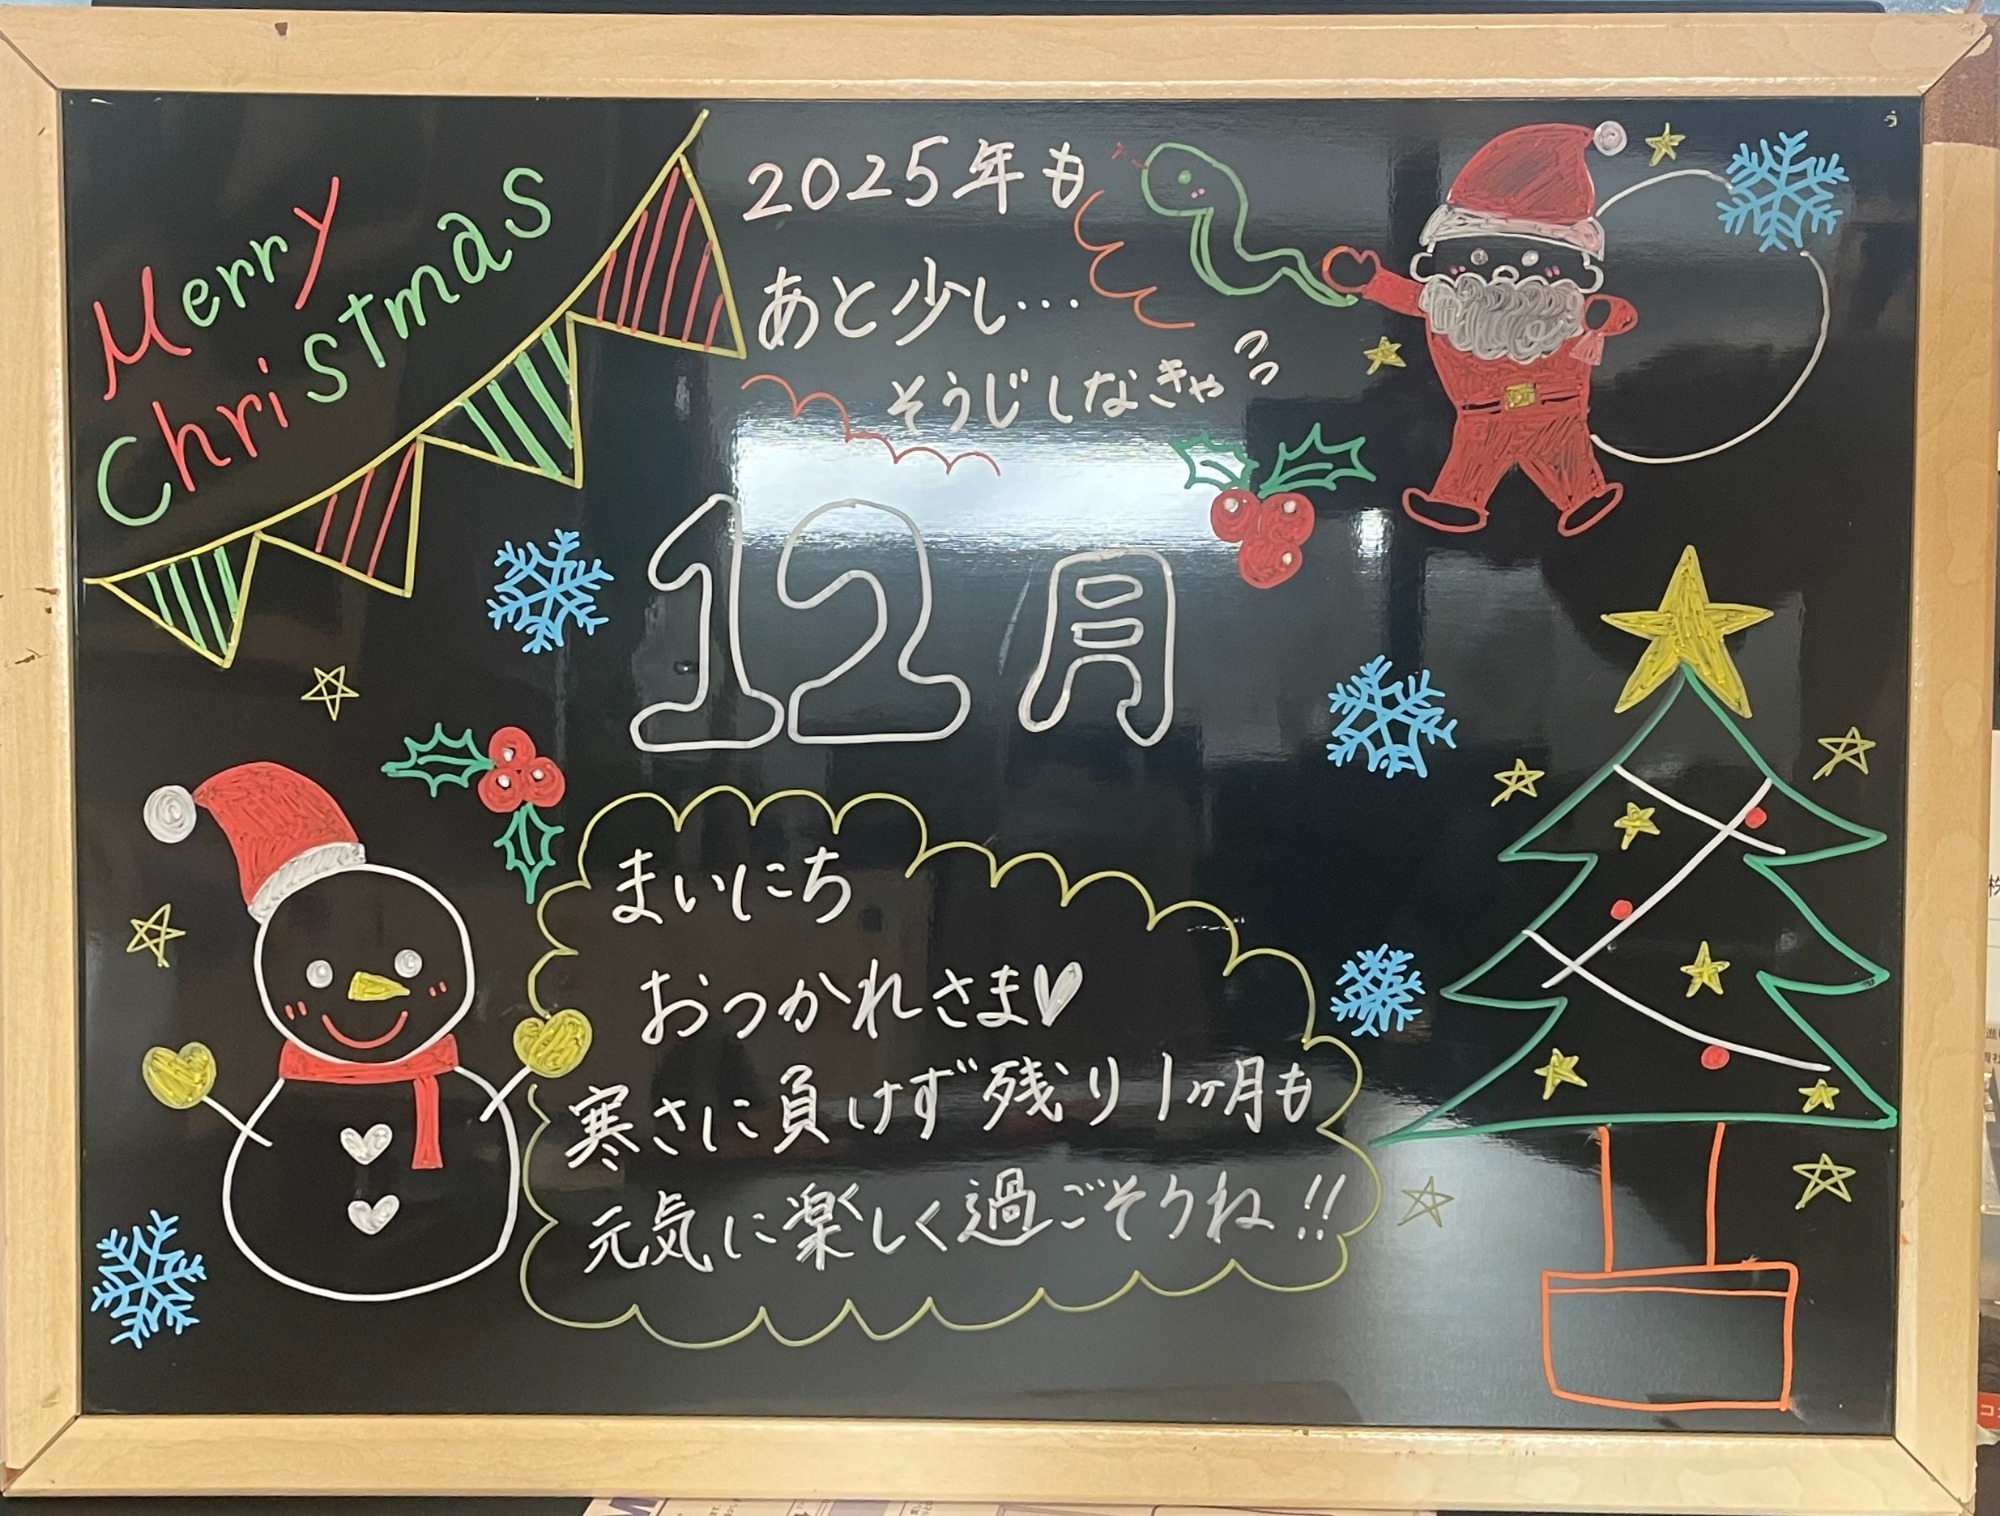 Merry
Christmas
2025年も
あと少し…
そうじしなきゃ
12月
まいにち
おつかれさま♡
寒さに負けず残り1ヶ月も
元気に楽しく過ごそうね!!